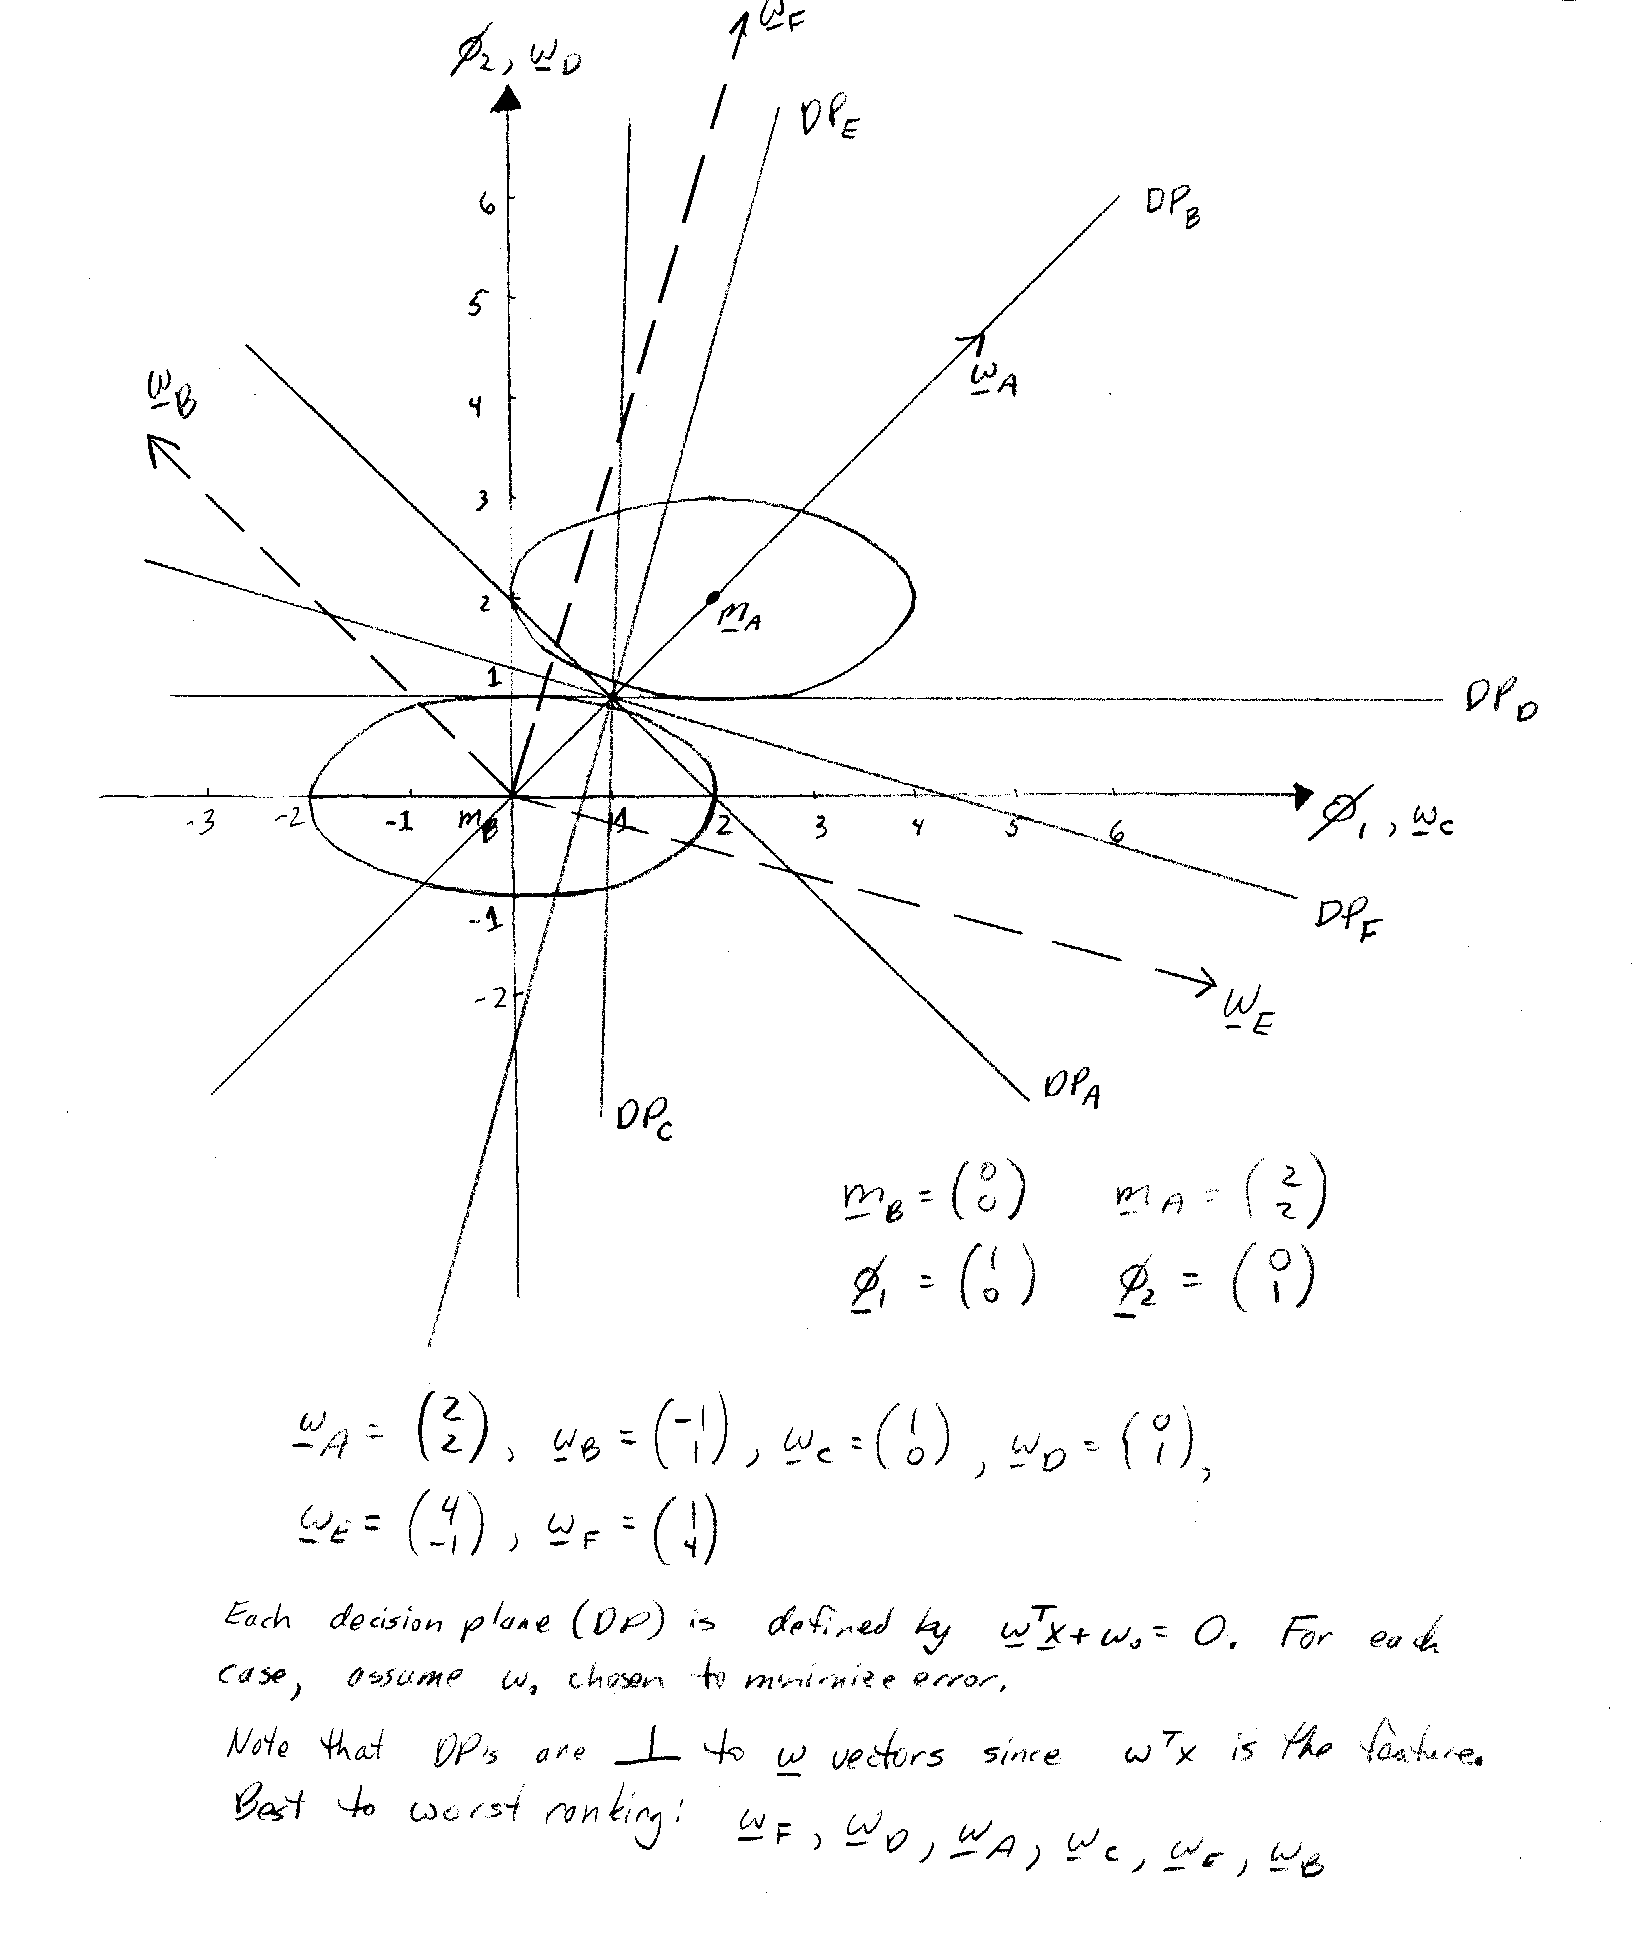 w̲F
ϕ2, w̲D
DPE
DPB
6
5
w̲B
w̲A
4
3
2
m̲A
1
DPD
-3 -2 -1 mB 1 2 3 4 5 6
ϕ1, w̲C
-1
DPF
-2
w̲E
DPA
DPC
m̲B = (0 0) m̲A = (2 2)
ϕ̲1 = (1 0) ϕ̲2 = (0 1)
w̲A = (2 2), w̲B = (-1 1), w̲C = (1 0), w̲D = (0 1),
w̲E = (4 -1), w̲F = (1 4)
Each decision plane (DP) is defined by w̲ᵀx̲ + w₀ = 0. For each
case, assume w₀ chosen to minimize error.
Note that DPs are ⊥ to w̲ vectors since wᵀx is the feature.
Best to worst ranking: w̲F, w̲D, w̲A, w̲C, w̲E, w̲B